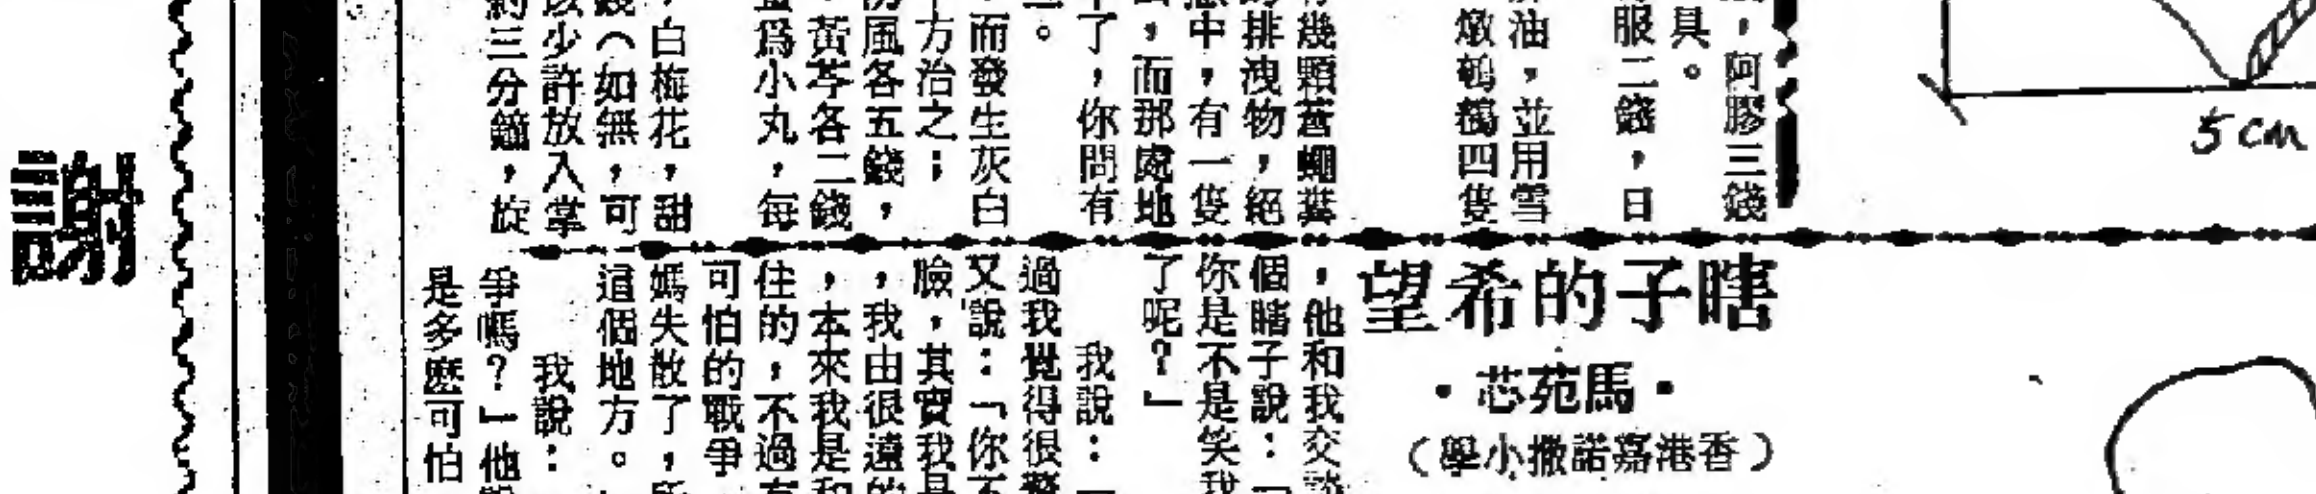 ，阿膠三錢
具。
服二錢，日
油，並用雪
燉鵪鶉四隻
幾顆蒼蠅糞
排洩物，絕
中，有一隻
，而那處地
了，你問有
。
而發生灰白
方治之；
風各五錢，
黃芩各二錢
為小丸，每
，白梅花，甜
錢（如無，可
少許放入掌
三分鐘，旋
瞎子的希望
·馬苑芯·
（香港嘉諾撒小學）
，他和我交談
個瞎子說：「
你是不是笑我
了呢？」
我說：「
過我覺得很
又說：「你不
臉，其實我是
，我由很遠的
，本來我是和
住的，不過有
可怕的戰爭
媽失散了，所
這個地方。
我說：
爭嗎？」他
是多麼可怕
謝
5cm